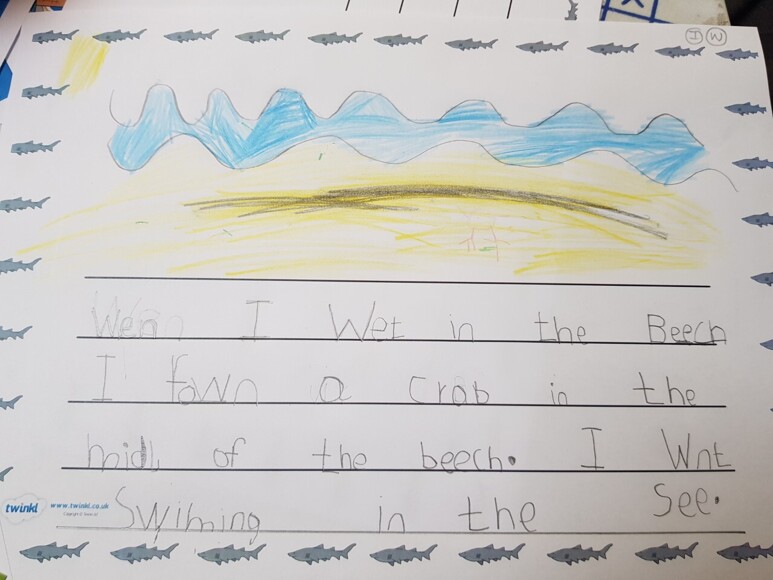 I W
Wen I Wet in the Beech
I fown a crab in the
midl of the beech. I Wnt
Swiming in the See.
twinkl www.twinkl.co.uk